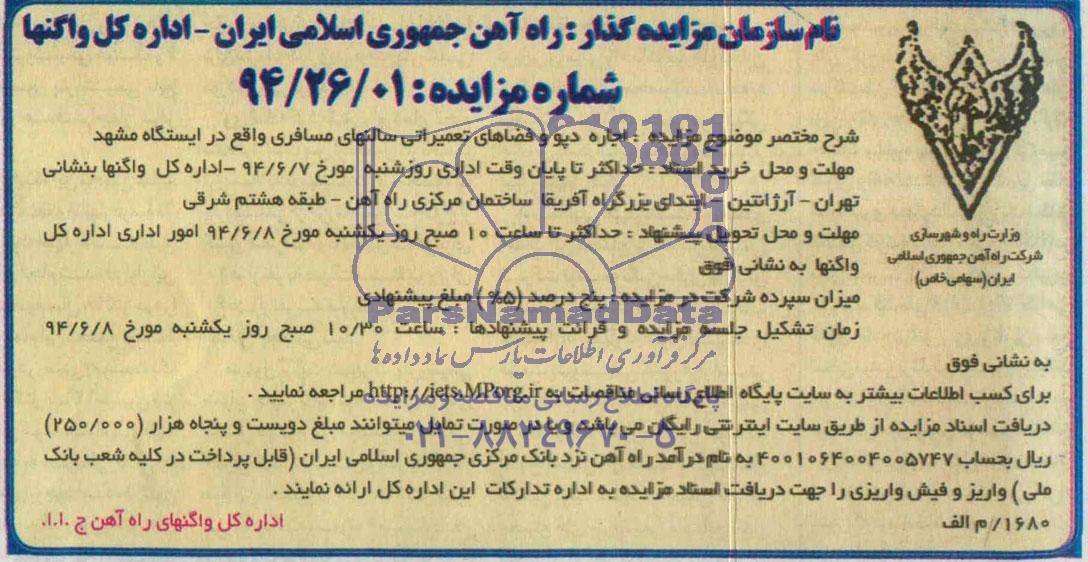 نام سازمان مزایده گذار : راه آهن جمهوری اسلامی ایران - اداره کل واگنها
شماره مزایده : ۹۴/۲۶/۰۱
وزارت راه و شهرسازی
شرکت راه آهن جمهوری اسلامی
ایران (سهامی خاص)
شرح مختصر موضوع مزایده : اجاره دپو و فضاهای تعمیراتی سالنهای مسافری واقع در ایستگاه مشهد
مهلت و محل خرید اسناد : حداکثر تا پایان وقت اداری روزشنبه مورخ ۹۴/۶/۷ -اداره کل واگنها بنشانی
تهران - آرژانتین - ابتدای بزرگراه آفریقا ساختمان مرکزی راه آهن - طبقه هشتم شرقی
مهلت و محل تحویل پیشنهاد : حداکثر تا ساعت ۱۰ صبح روز یکشنبه مورخ ۹۴/۶/۸ امور اداری اداره کل
واگنها به نشانی فوق
میزان سپرده شرکت در مزایده : پنج درصد (۵%) مبلغ پیشنهادی
زمان تشکیل جلسه مزایده و قرائت پیشنهادها : ساعت ۱۰/۳۰ صبح روز یکشنبه مورخ ۹۴/۶/۸
به نشانی فوق
برای کسب اطلاعات بیشتر به سایت پایگاه اطلاع رسانی مناقصات به http://iets.MPorg.ir مراجعه نمایید .
دریافت اسناد مزایده از طریق سایت اینترنتی رایگان می باشد و یا در صورت تمایل میتوانند مبلغ دویست و پنجاه هزار (۲۵۰/۰۰۰)
ریال بحساب ۴۰۰۱۰۶۴۰۰۴۰۰۵۷۴۷ به نام درآمد راه آهن نزد بانک مرکزی جمهوری اسلامی ایران (قابل پرداخت در کلیه شعب بانک
ملی ) واریز و فیش واریزی را جهت دریافت اسناد مزایده به اداره تدارکات این اداره کل ارائه نمایند .
۱۶۸۰/م الف
اداره کل واگنهای راه آهن ج .ا.ا.
ParsNamadData
مرکز فرآوری اطلاعات پارس نماد داده ها
پایگاه اطلاع رسانی مناقصه و مزایده
۰۲۱-۸۸۳۴۹۶۷۰-۵